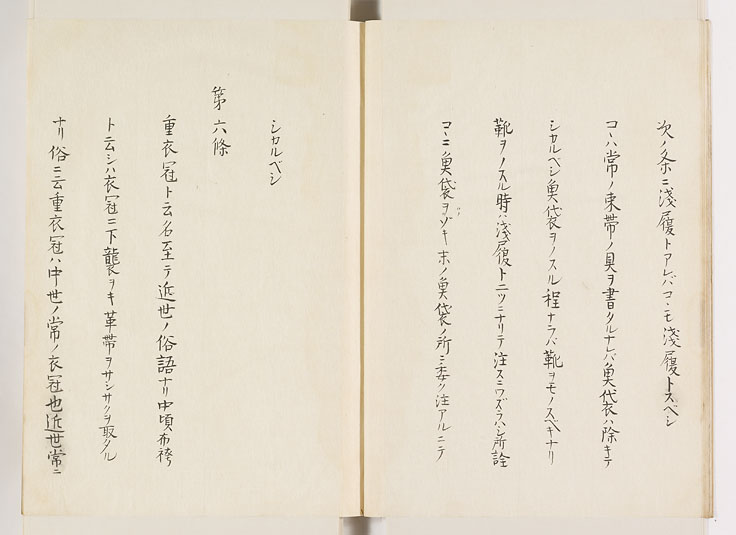 次ノ条ニ淺履トアレバコヽモ淺履トスベシ
コヽハ常ノ束帶ノ具ヲ書タルナレバ魚代衣ハ除キテ
シカルベシ魚袋ヲノスル程ナラバ靴ヲモノスベキナリ
靴ヲノスル時ハ淺履ト二ツニナリテ注スニワズラハシ所詮
コヽニ魚袋ヲゾキ末ノ魚袋ノ所ニ委ク注アルニテ
シカルベシ
第六條
重衣冠ト云名至テ近世ノ俗語ナリ中頃布袴
ト云シハ衣冠ニ下襲ヲキ革帶ヲサシサクヲ取タル
ナリ俗ニ云重衣冠ハ中世ノ常ノ衣冠也近世常ニ